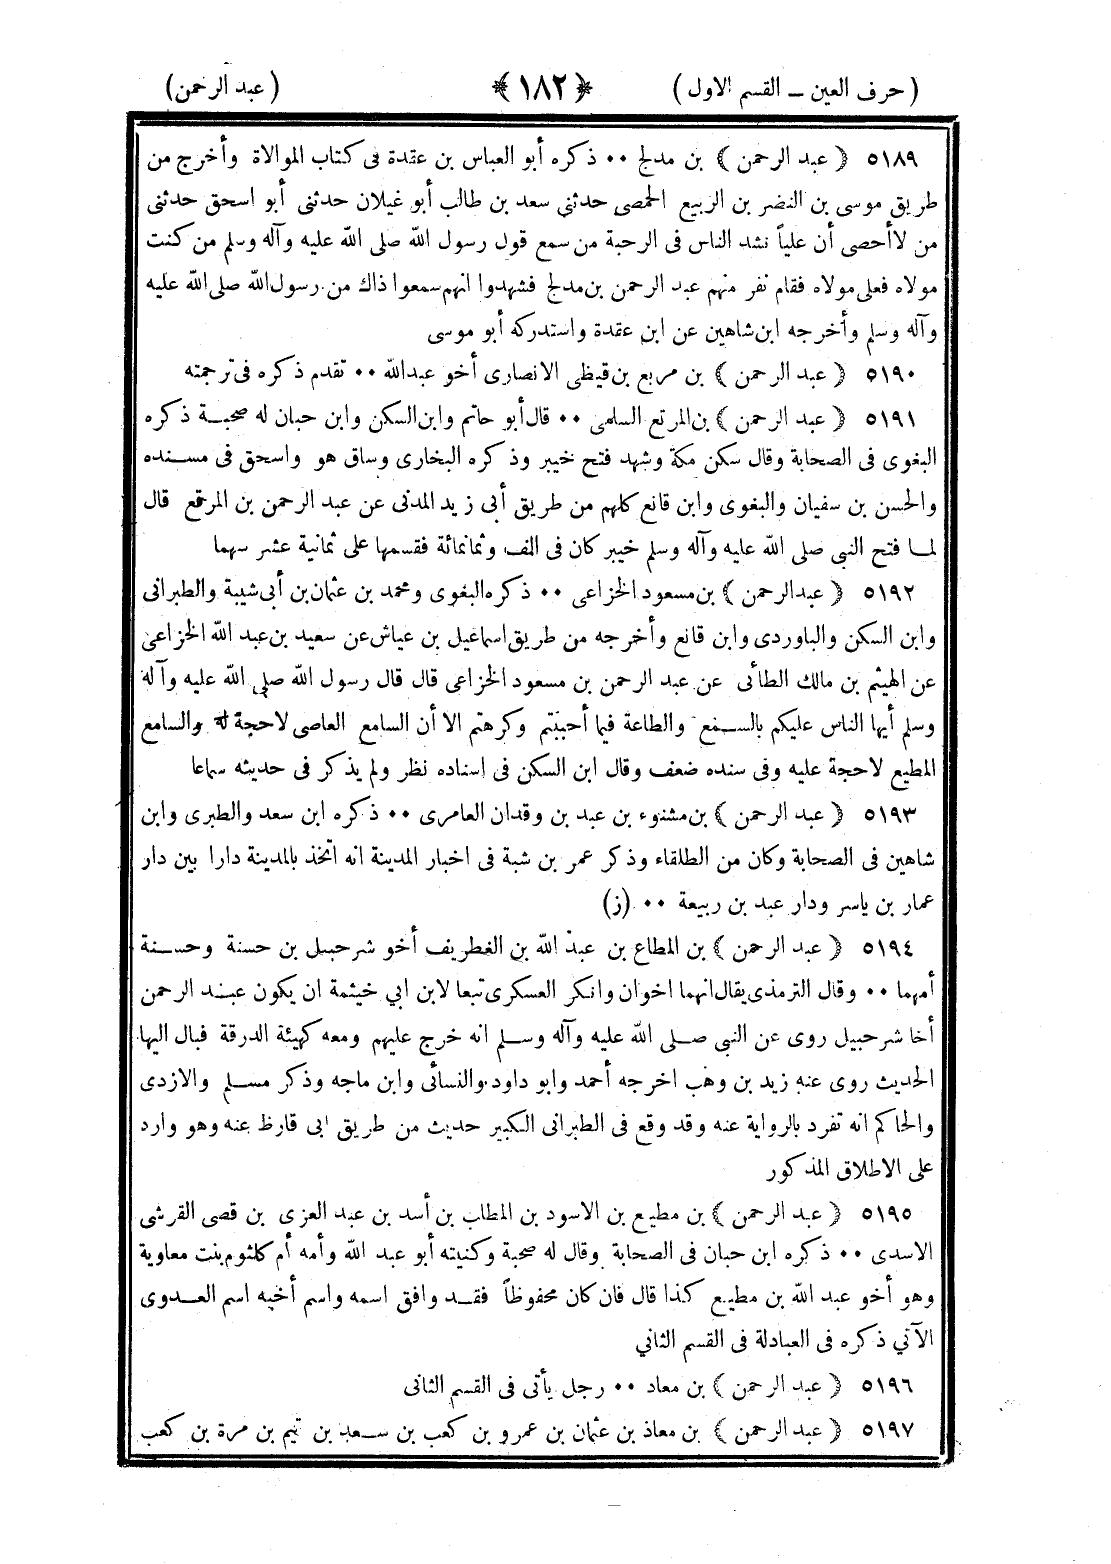 ( حرف العين ــ القسم الاول ) ﴿ ١٨٢ ﴾ ( عبد الرحمن )
٥١٨٩ ﴿ عبد الرحمن ﴾ بن مدلج ٠٠ ذكره أبو العباس بن عقدة فى كتاب الموالاة وأخرج من
طريق موسى بن النضر بن الربيع الحمصى حدثنى سعد بن طالب أبو غيلان حدثنى أبو اسحق حدثنى
من لاأحصى أن علياً نشد الناس فى الرحبة من سمع قول رسول الله صلى الله عليه وآله وسلم من كنت
مولاه فعلى مولاه فقام نفر منهم عبد الرحمن بن مدلج فشهدوا انهم سمعوا ذاك من رسول الله صلى الله عليه
وآله وسلم وأخرجه ابن شاهين عن ابن عقدة واستدركه أبو موسى
٥١٩٠ ﴿ عبد الرحمن ﴾ بن مربع بن قيظى الانصارى أخو عبدالله ٠٠ تقدم ذكره فى ترجمته
٥١٩١ ﴿ عبد الرحمن ﴾ بن المرتع السلمى ٠٠ قال أبو حاتم وابن السكن وابن حبان له صحبة ذكره
البغوى فى الصحابة وقال سكن مكة وشهد فتح خيبر وذكره البخارى وساق هو واسحق فى مسنده
والحسن بن سفيان والبغوى وابن قانع كلهم من طريق أبى زيد المدنى عن عبد الرحمن بن المرقع قال
لما فتح النبى صلى الله عليه وآله وسلم خيبر كان فى الف وثمانمائة فقسمها على ثمانية عشر سهما
٥١٩٢ ﴿ عبدالرحمن ﴾ بن مسعود الخزاعى ٠٠ ذكره البغوى ومحمد بن عثمان بن أبى شيبة والطبرانى
وابن السكن والباوردى وابن قانع وأخرجه من طريق اسماعيل بن عياش عن سعيد بن عبد الله الخزاعى
عن الهيثم بن مالك الطائى عن عبد الرحمن بن مسعود الخزاعى قال قال رسول الله صلى الله عليه وآله
وسلم أيها الناس عليكم بالسمع والطاعة فيما أحببتم وكرهتم الا أن السامع العاصى لاحجة له والسامع
المطيع لاحجة عليه وفى سنده ضعف وقال ابن السكن فى اسناده نظر ولم يذكر فى حديثه سماعا
٥١٩٣ ﴿ عبد الرحمن ﴾ بن مشنوء بن عبد بن وقدان العامرى ٠٠ ذكره ابن سعد والطبرى وابن
شاهين فى الصحابة وكان من الطلقاء وذكر عمر بن شبة فى اخبار المدينة انه اتخذ بالمدينة دارا بين دار
عمار بن ياسر ودار عبد بن ربيعة ٠٠ (ز)
٥١٩٤ ﴿ عبد الرحمن ﴾ بن المطاع بن عبد الله بن الغطريف أخو شرحبيل بن حسنة وحسنة
أمهما ٠٠ وقال الترمذى يقال انهما اخوان وانكر العسكرى تبعا لابن ابي خيثمة ان يكون عبد الرحمن
أخا شرحبيل روى عن النبي صلى الله عليه وآله وسلم انه خرج عليهم ومعه كهيئة الدرقة فبال اليها
الحديث روى عنه زيد بن وهب اخرجه أحمد وابو داود والنسائى وابن ماجه وذكر مسلم والازدى
والحاكم انه تفرد بالرواية عنه وقد وقع فى الطبرانى الكبير حديث من طريق ابى قارظ عنه وهو وارد
على الاطلاق المذكور
٥١٩٥ ﴿ عبد الرحمن ﴾ بن مطيع بن الاسود بن المطلب بن أسد بن عبد العزى بن قصى القرشى
الاسدى ٠٠ ذكره ابن حبان فى الصحابة وقال له صحبة وكنيته أبو عبد الله وأمه أم كلثوم بنت معاوية
وهو أخو عبد الله بن مطيع كذا قال فان كان محفوظاً فقد وافق اسمه واسم أخيه اسم العدوى
الآتي ذكره فى العبادلة فى القسم الثاني
٥١٩٦ ﴿ عبد الرحمن ﴾ بن معاد ٠٠ رجل يأتى فى القسم الثانى
٥١٩٧ ﴿ عبد الرحمن ﴾ بن معاذ بن عثمان بن عمرو بن كعب بن سعد بن تيم بن مرة بن كعب